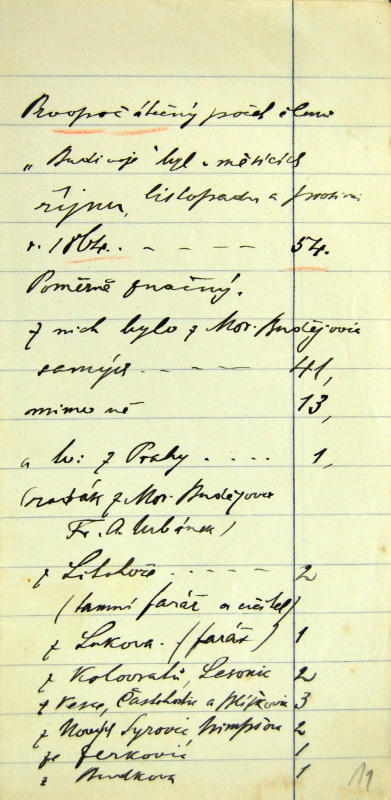 Prvopočátečný počet členů
„Budivoje" byl v měsících
říjnu, listopadu a prosinci
r. 1864. . - - - - 54.
Poměrně značný.
Z nich bylo z Mor. Budějovic
samých - - - - 41,
mimo ně 13,
a to: z Prahy . . . . 1,
(rodák z Mor. Budějovic
Fr. A. Urbánek)
z Litohoře - - - - - 2
(tamní farář a učitel)
z Lukova. (farář) 1
z Kolovratů, Lesonic 2
z Častohostic a 3
z Nových Syrovic, 2
ze Ferkovic 1
z Budkova 1
19